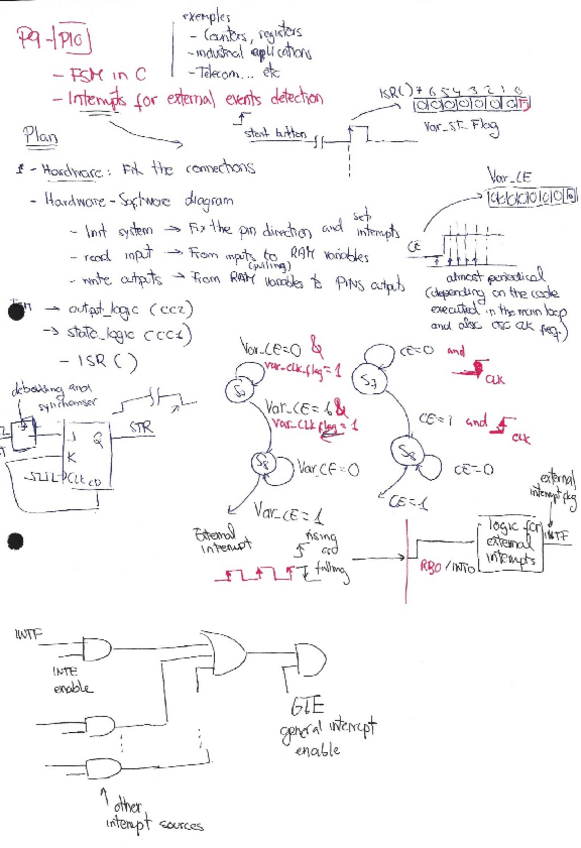 P9-P10
examples
- Counters, registers
- industrial applications
- Telecom... etc
- FSM in C
- Interrupts for external events detection
ISR() 7 6 5 4 3 2 1 0
Var_ST_Flag
start button
Plan
- Hardware: Fix the connections
Var_CE
- Hardware-Software diagram
- Init system → Fix the pin direction and set interrupts
- read input → From inputs to RAM variables
(pulling)
- write outputs → From RAM variables to PINS outputs
CE
almost periodical
(depending on the code
executed in the main loop
and also OSC CLK freq.)
→ output_logic (CC2)
→ state_logic (CC1)
- ISR ( )
debouncing and
synchroniser
J Q
K
CLK CD
STR
Var_CE=0 &
Var_CLK_flag=1
S7
Var_CE=1 &
Var_CLK_flag=1
S8
Var_CE=0
Var_CE=1
CE=0 and
CLK
S7
CE=1 and
CLK
S8
CE=0
CE=1
External
interrupt
rising
and
falling
RB0/INT0
logic for
external
interrupts
external
interrupt flag
INTF
INTF
INTE
enable
GIE
general interrupt
enable
other
interrupt sources